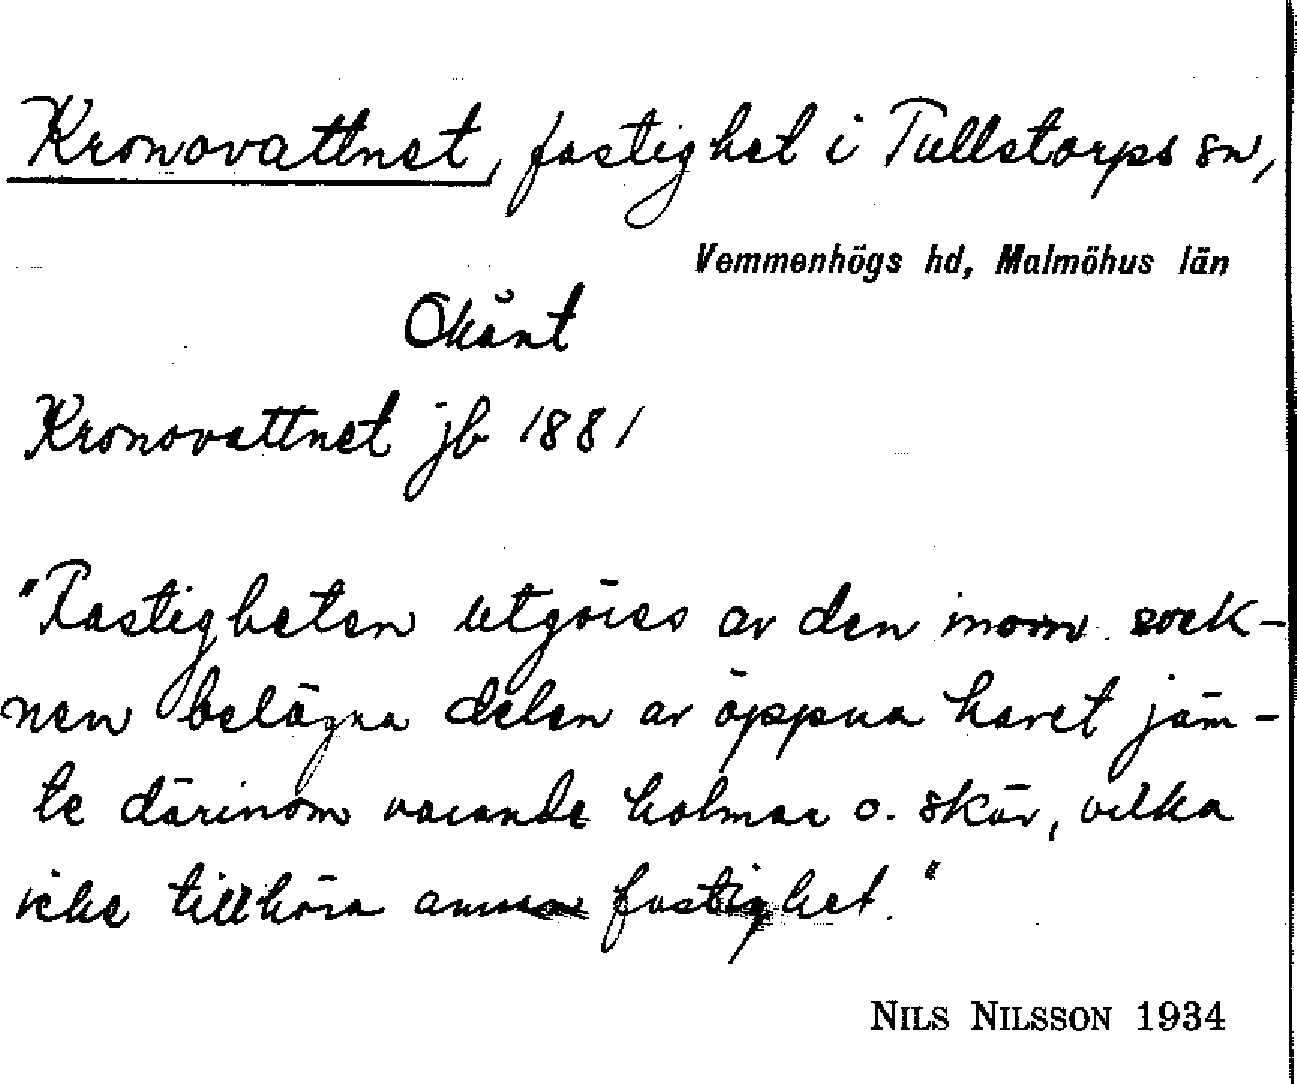 Kronovattnet, fastighet i Tullstorps sn,
Vemmenhögs hd, Malmöhus län
Okänt
Kronovattnet jb 1881
"Fastigheten utgöres av den inom sock-
nen belägna delen av öppna havet jäm-
te därinom varande holmar o. skär, vilka
icke tillhöra annan fastighet."
NILS NILSSON 1934